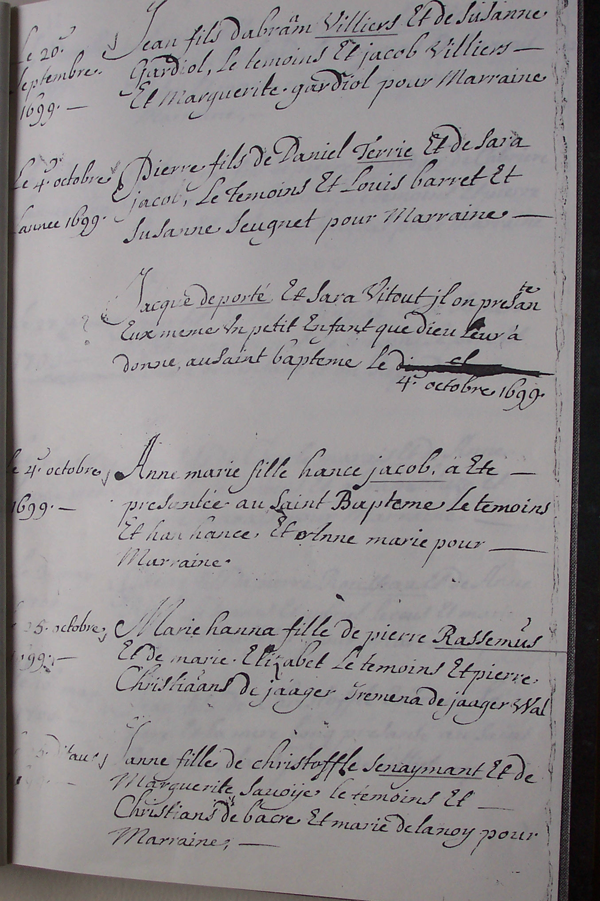 Le 20e
Septembre
1699.
Jean fils dabram Villiers Et de Susanne
Gardiol, Le temoins Et jacob Villiers
Et Marguerite gardiol pour Marraine
Le 4e octobre
L'annee 1699.
Pierre fils de Daniel Terrie Et de Sara
jacob, Le Temoins Et Louis barret Et
Susanne Seugnet pour Marraine
?
Jacque deporté Et Sara Vitout jl on presante
Eux meme Vn petit Enfant que dieu Leur à
donne, au Saint bapteme Le
4e octobre 1699.
le 4e octobre
1699.
Anne marie fille hance jacob, à Ete
presentée au Saint Bapteme Le temoins
Et han hance, Et anne marie pour
Marraine.
25. octobre
99.
Marie hanna fille de pierre Rassemus
Et de marie Elizabet Le temoins Et pierre
Christiaans de jaager Iremena de jaager Wal
ditau
Janne fille de christoffle Senaymant Et de
Marguerite Savoije le temoins Et
Christians de bacre Et marie delanoy pour
Marraine,